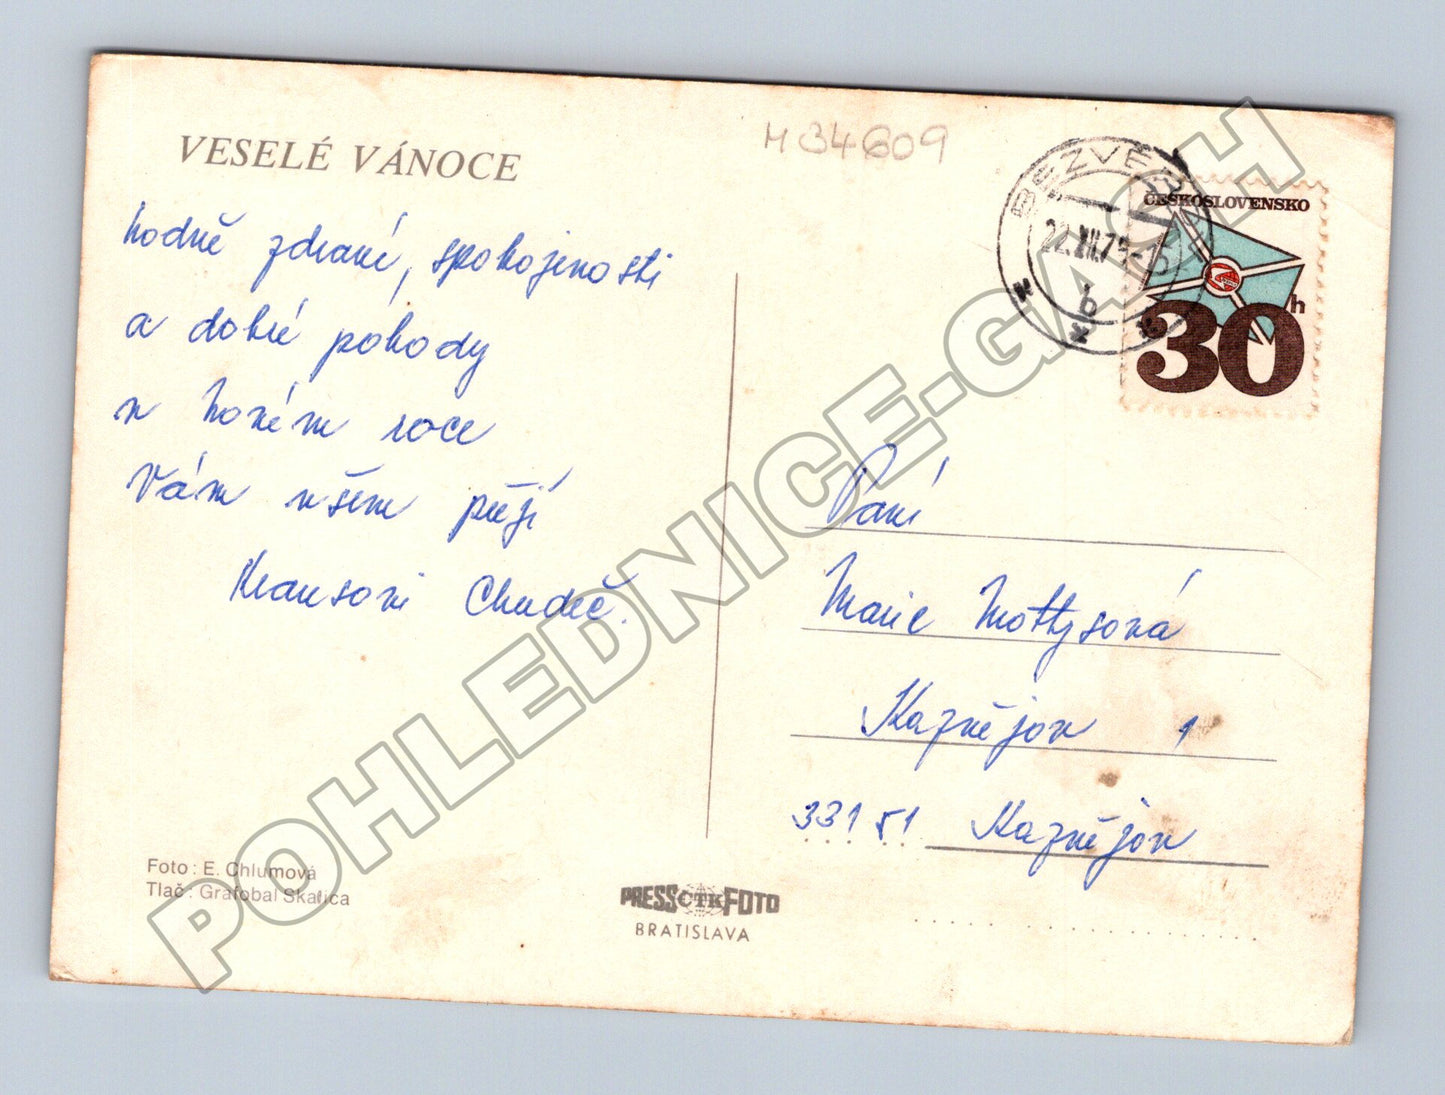 VESELÉ VÁNOCE
hodně zdraví, spokojenosti
a dobré pohody
v novém roce
Vám všem přejí
Krausovi Chudeč.
Foto: E. Chlumová
Tlač: Grafobal Skalica
PRESS ČTK FOTO
BRATISLAVA
M 34609
BEZVĚ
22.XII.75-15
b
ČESKOSLOVENSKO
30h
Paní
Marie Mottysová
Kaznějov 1
331 51 Kaznějov
POHLEDNICE-GASH